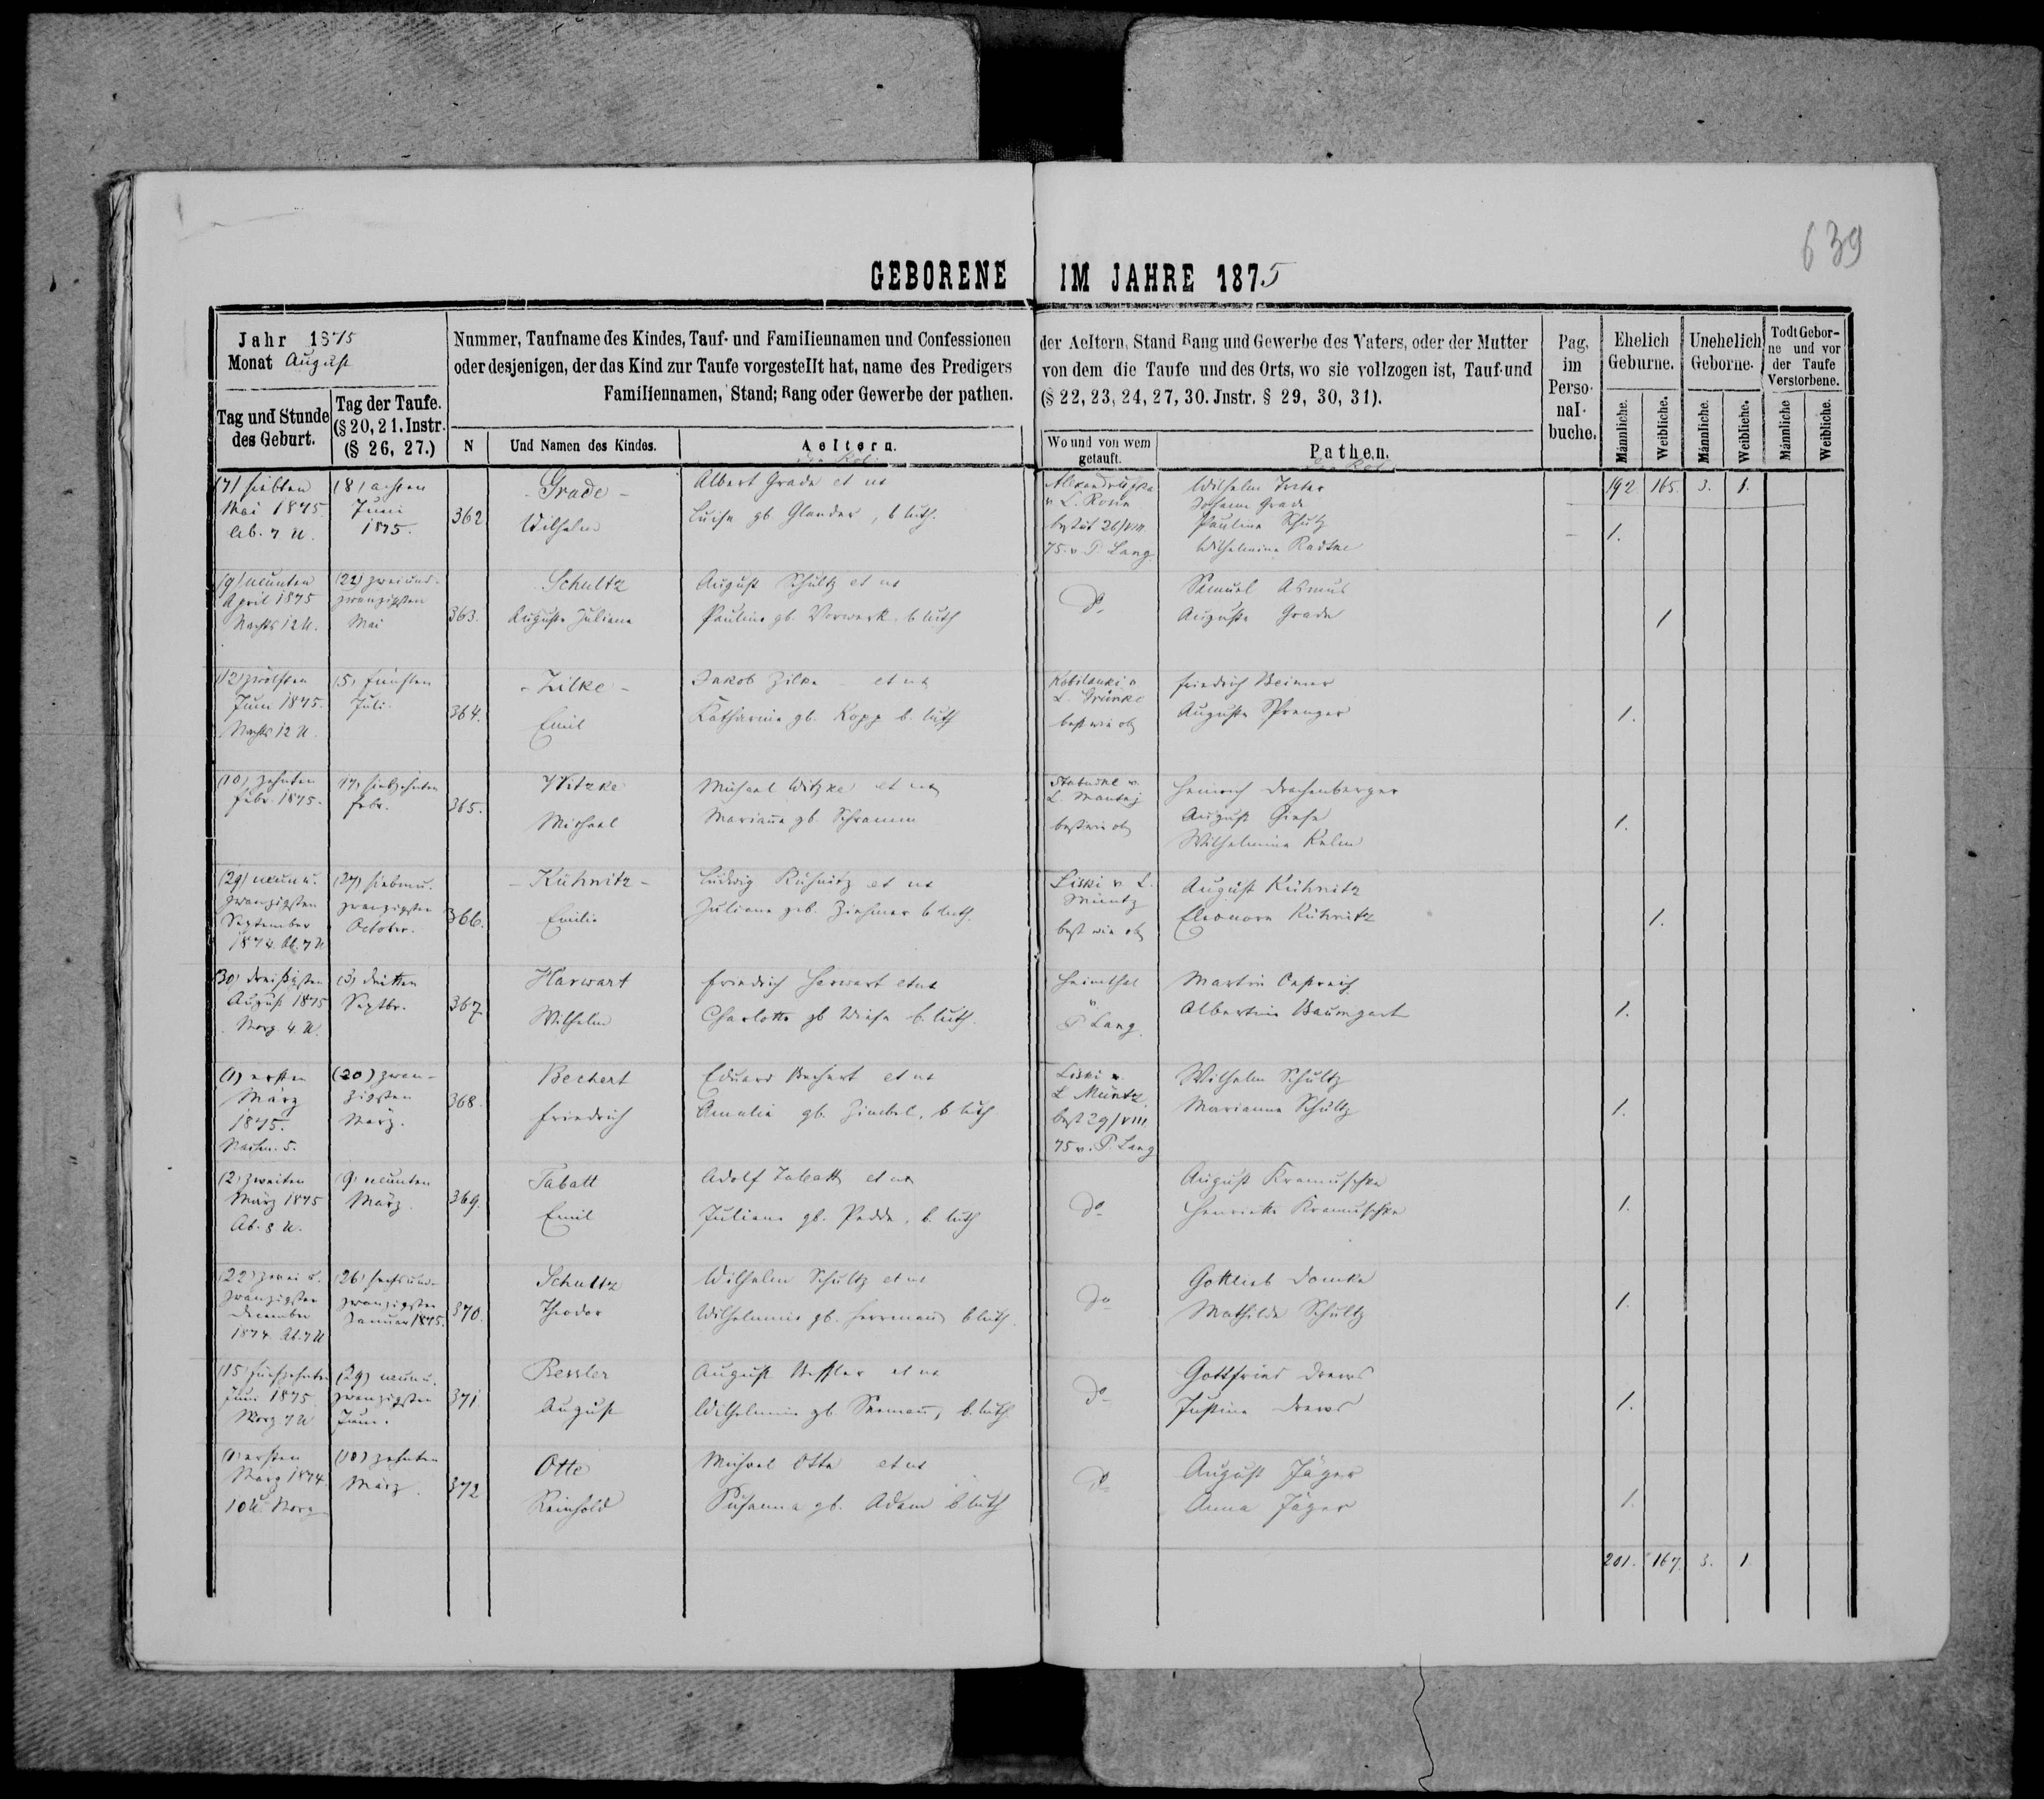 639
GEBORENE IM JAHRE 1875
Jahr 1875
Monat August
Nummer, Taufname des Kindes, Tauf- und Familiennamen und Confessionen
oder desjenigen, der das Kind zur Taufe vorgestellt hat, name des Predigers
Familiennamen, Stand; Rang oder Gewerbe der pathen.
der Aeltern, Stand Rang und Gewerbe des Vaters, oder der Mutter
von dem die Taufe und des Orts, wo sie vollzogen ist, Tauf-und
(§ 22, 23, 24, 27, 30. Jnstr. § 29, 30, 31).
Pag. im Perso-nal-buche.
Ehelich Geburne.
Unehelich Geborne.
Todt Gebor-ne und vor der Taufe Verstorbene.
Tag und Stunde des Geburt.
Tag der Taufe. (§ 20, 21. Instr. (§ 26, 27.)
N
Und Namen des Kindes.
Aeltern.
Wo und von wem getauft.
Pathen.
Männliche. Weibliche. Männliche. Weibliche. Männliche Weibliche.
192 165. 3. 1.
(7) siebten
Mai 1875
Ab. 7 U.
(8) achten
Juni
1875.
362
Grade
Wilhelm
Albert Grade et ux
Luise gb. Glander, b luth.
v L. Rosin
best. 26/VIII
75. v P. Lang
Johann Grade
Pauline Schultz
Wilhelmine Radtke
1.
(9) neunten
April 1875
Nachts 12 U.
(22) zweiund-
zwanzigsten
Mai
363.
Schultz
Auguste Juliane
August Schultz et ux
Pauline gb. Vorwerk. b luth
do
Samuel Asmus
Auguste Grade
1
(12) zwölften
Juni 1875.
Nachts 12 U.
(5) fünften
Juli.
364.
Zilke
Emil
Jakob Zilke et ux
Katharine gb. Kopp b. luth
Kobilanki v
best wie ob
Friedrich
Auguste Sprenger
1.
(10) zehnten
Febr. 1875.
(17) siebzehnten
Febr.
365.
Witzke
Michael
Michael Witzke et ux
Marianna gb. Schramm
L. Mantej
best wie ob
Heinrich Drachenberger
August Giese
Wilhelmine Kelm
1.
(29) neunu.
zwanzigsten
September
1874. Ab. 7 U
(27) siebenu.
zwanzigsten
October.
366.
Kühnitz
Emilie
Ludwig Kühnitz et ux
Juliane geb. Ziehmer b luth.
Liski v L.
Müntz
best wie ob
August Kühnitz
Eleonore Kühnitz
1.
(30) dreißigsten
August 1875
Morg 4. U.
(3) dritten
Septbr.
367
Harwart
Wilhelm
Friedrich Harwart et ux
Charlotte gb Wiese b. luth
v
P Lang
Martin Oestreich
Albertine Baumgart
1.
(1) ersten
März
1875.
Nachm. 5.
(20) zwan-
zigsten
März.
368.
Bechert
Friedrich
Eduard Bechert et ux
Amalie gb. Zimbel, b luth
Liski v.
L Müntz
best 29/VIII
75 v. P. Lang
Wilhelm Schultz
Marianne Schultz
1.
(2) zweiten
März 1875
Ab. 8 U.
(9) neunten
März.
369.
Tabatt
Emil
Adolf Tabatt et ux
Juliane gb. Padde, b. luth
do
August Kramuschke
Henriette Kramuschke
1.
(22) zwei u.
zwanzigsten
December
1874 Ab. 7 U
(26) sechsund-
zwanzigsten
Januar 1875.
370.
Schultz
Theodor
Wilhelm Schultz et ux
Wilhelmine gb. Herrmann b luth.
do
Gottlieb Domke
Mathilde Schultz
1.
(15) fünfzehnten
Juni 1875
Morg 7 U
(29) neunu.
zwanzigsten
Juni.
371.
Bessler
August
August Bessler et ux
Wilhelmine gb. b. luth.
do
Gottfried Drews
Justine Drews
1.
(1) ersten
März 1874
10 U. Morg
(10) zehnten
März.
372
Otto
Reinhold
Michael Otto et ux
Susanna gb. Adam b luth
do
August Jäger
Anna Jäger
1.
201. 167. 3. 1